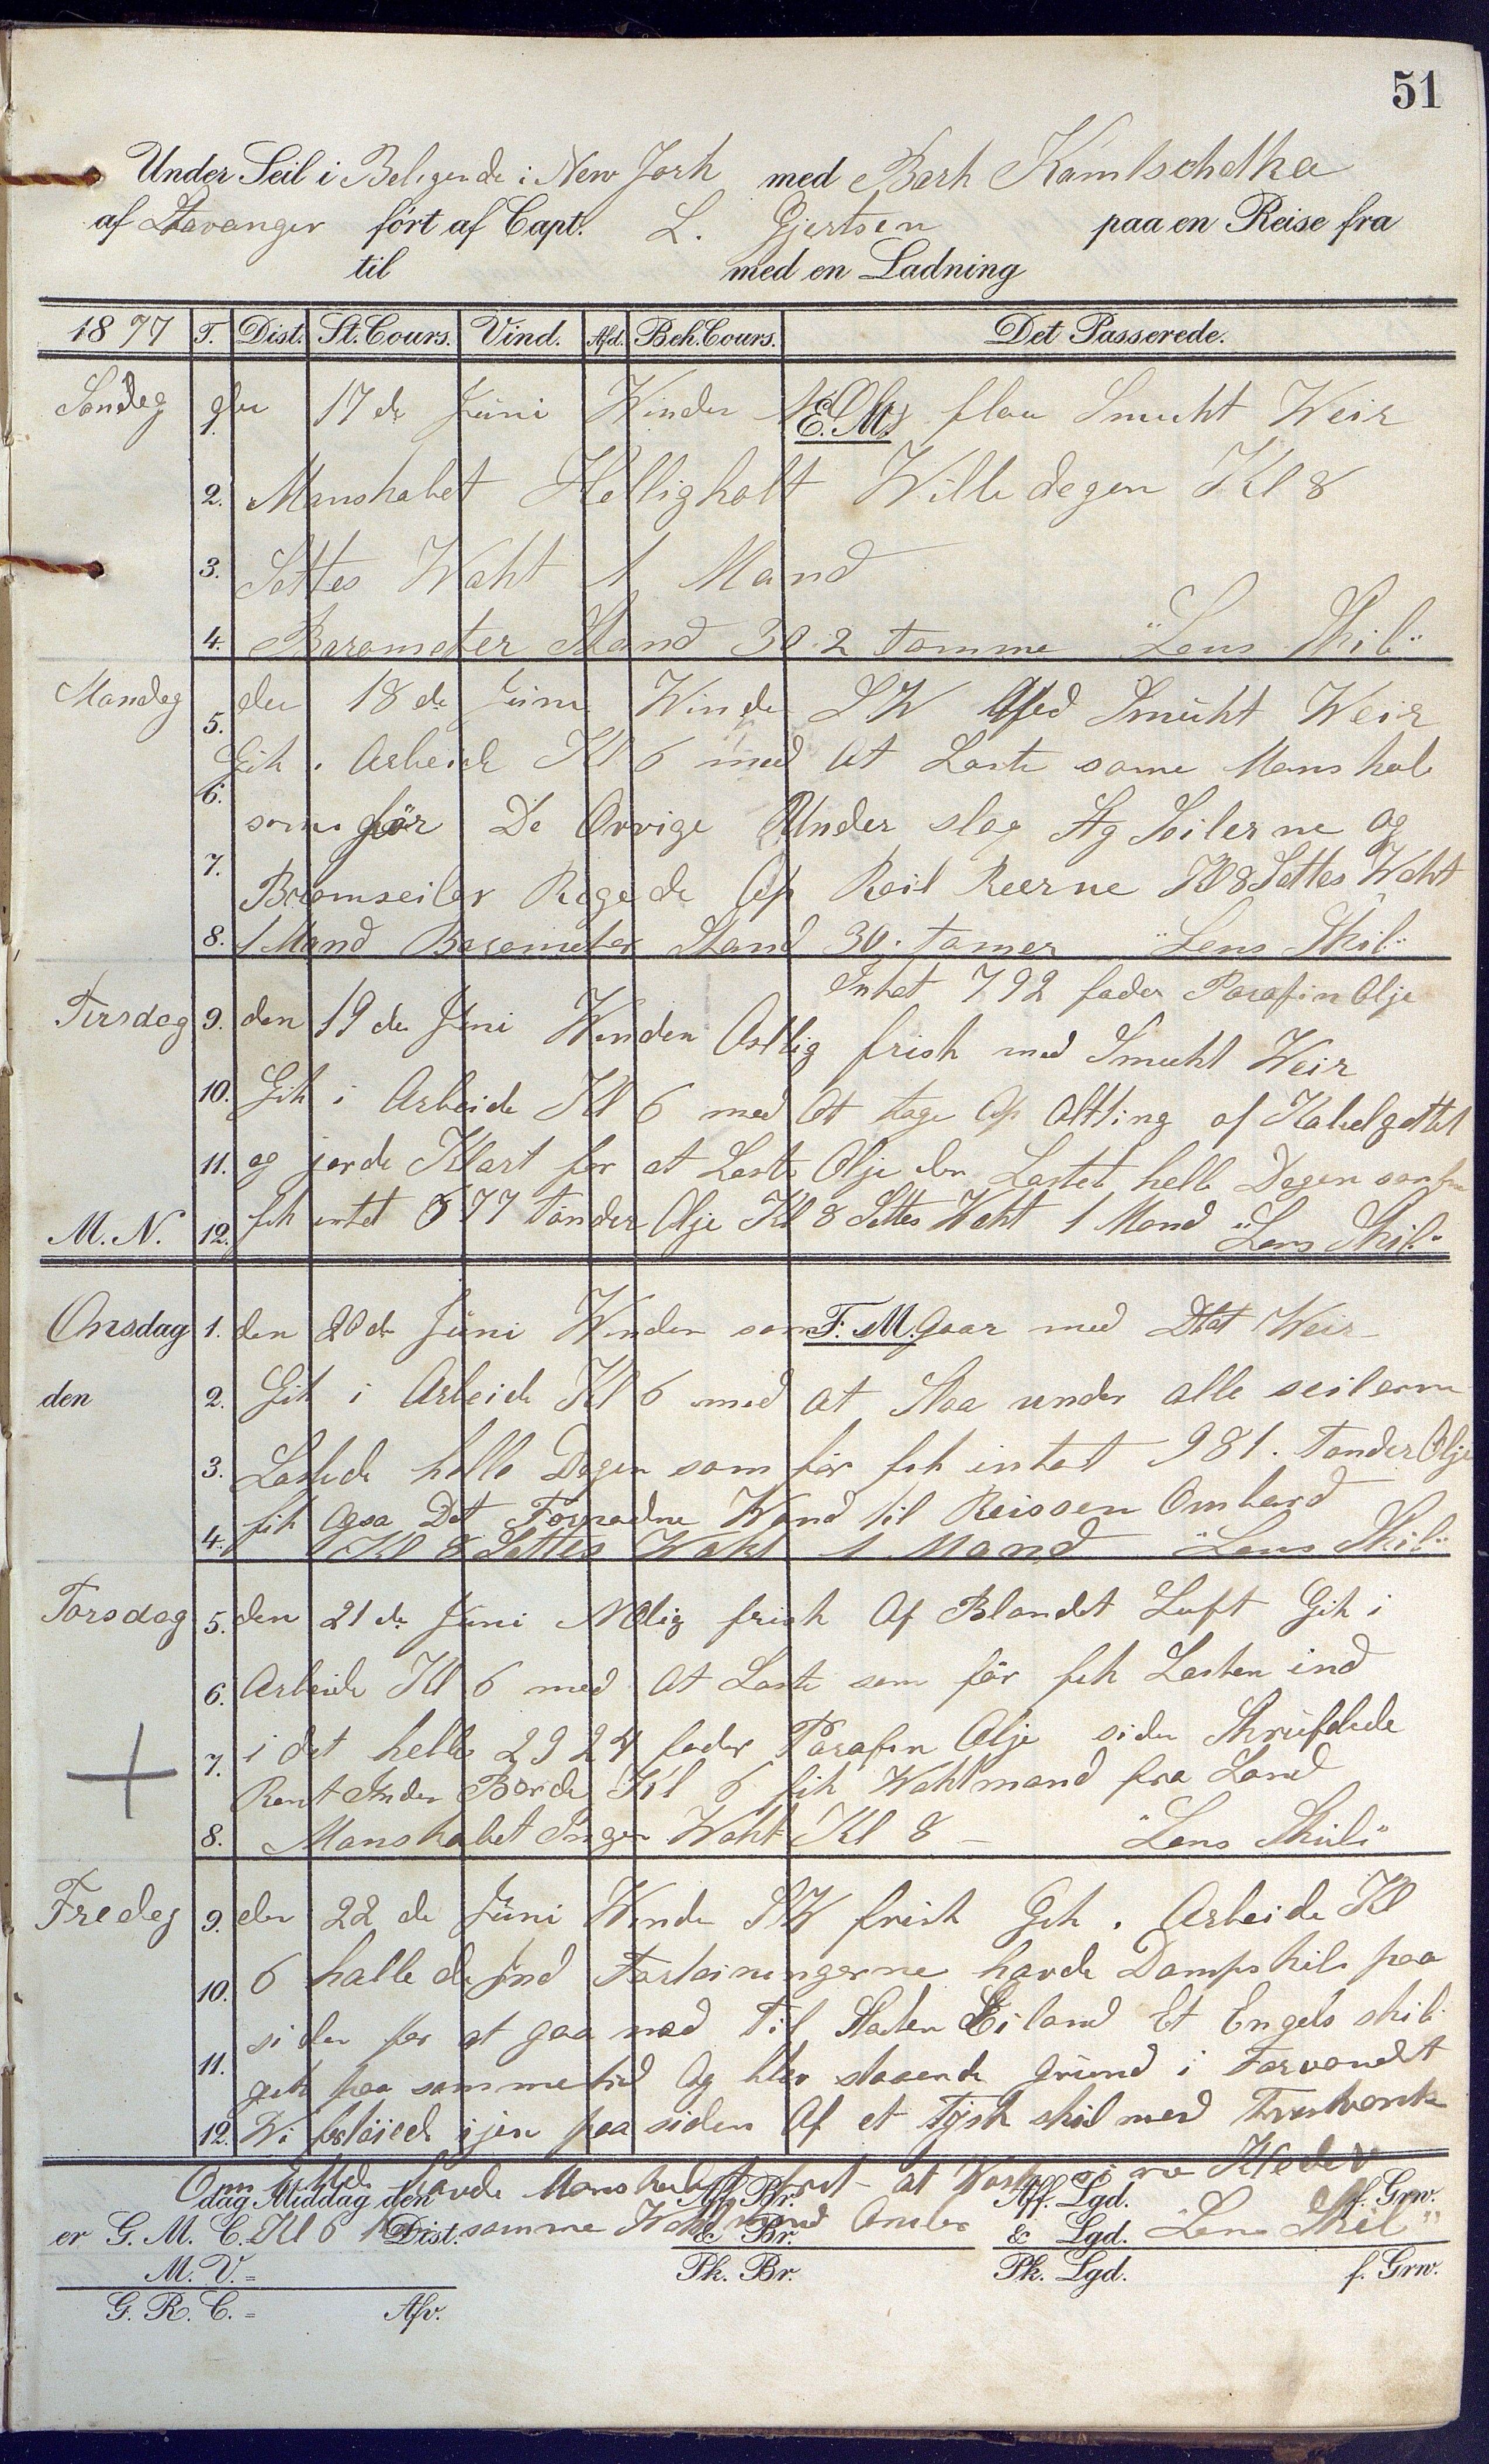 51
Under Seil i Beligende i New Jork med Bark Kamtschatka
af Stavanger ført af Capt. L. Gjertsen paa en Reise fra
til med en Ladning
1877 T. Dist. St. Cours. Vind. Afd. Beh. Cours. Det Passerede.
Søndag den 17 de Juni Winden flau Smukt Weir
E. M.
1.
2. Manskabet Helligholt Wille dagen Kl 8
3. Settes Waht 1 Mand
4. Barometer Stand 30.2 tomme "Lens Skib"
Mandag 5. den 18 de Juni Winde SW Med Smukt Weir
Gik i Arbeide Kl 6 med at Laste same Manskab
6. som før De Øvrige Under slog Stg Seilerne og
7. Bramseiler Regede Op Roil Reerne Kl 8 Settes Waht
8. 1 Mand Barometer Stand 30. tomer "Lens Skib"
Intat 792 fader Parafin Olje
Tirsdag 9. den 19 de Juni Winden Ostlig frisk med Smukt Weir
10. Gik i Arbeide Kl 6 med At tage Op Alting af Kabelgattet
11. og jorde Klart for at Laste Olje der Lastet helle Dagen som før
M. N. 12. fik intat 877 tønder Olje Kl 8 Settes Waht 1 Mand "Lens Skib"
Onsdag 1. den 20 de Juni Winden som F. M. Gaar med Weir
den 2. Gik i Arbeide Kl 6 med at Slaa under alle seilerne
3. Lastede helle Dagen som før fik intat 981. Tønder Olje
4. fik Ogsa Det Fornødne Wand til Reissen Ombord
Kl 8 Settes Waht 1 Mand "Lens Skib"
Torsdag 5. den 21 de Juni NOlig frisk Af Blandet Luft Gik i
6. Arbeide Kl 6 med At Laste som før fik Lasten ind
7. i det helle 2924 fader Parafin Olje siden Skrufdede
Rent Inden Borde Kl 6 fik Wahtmand fra Land
8. Manskabet Ingen Waht Kl 8 — "Lens Skib"
Fredag 9. den 22 de Juni Winde SW frisk Gik i Arbeide Kl
10. 6 halle de Ind Fortøiningerne havde Dampskib paa
siden for at gaa ned Til Staten Eiland Et Engels skib
11. gik paa samme tid Og blev staaende Grund i Farvandet
12. Wi fortøiede igjen paa siden Af et Tysk skib med
Om havde Manskabet frit at Waske sine Kleder
dag Middag den Aff. Br. Aff. Lgd. f. Grw.
er G. M. C. = Kl 6 Dist. samme Wahtmand Ombor & Br. & Lgd. "Lens Skib"
M. V. = Pk. Br. Pk. Lgd. f. Grw.
G. R. C. = Afv.